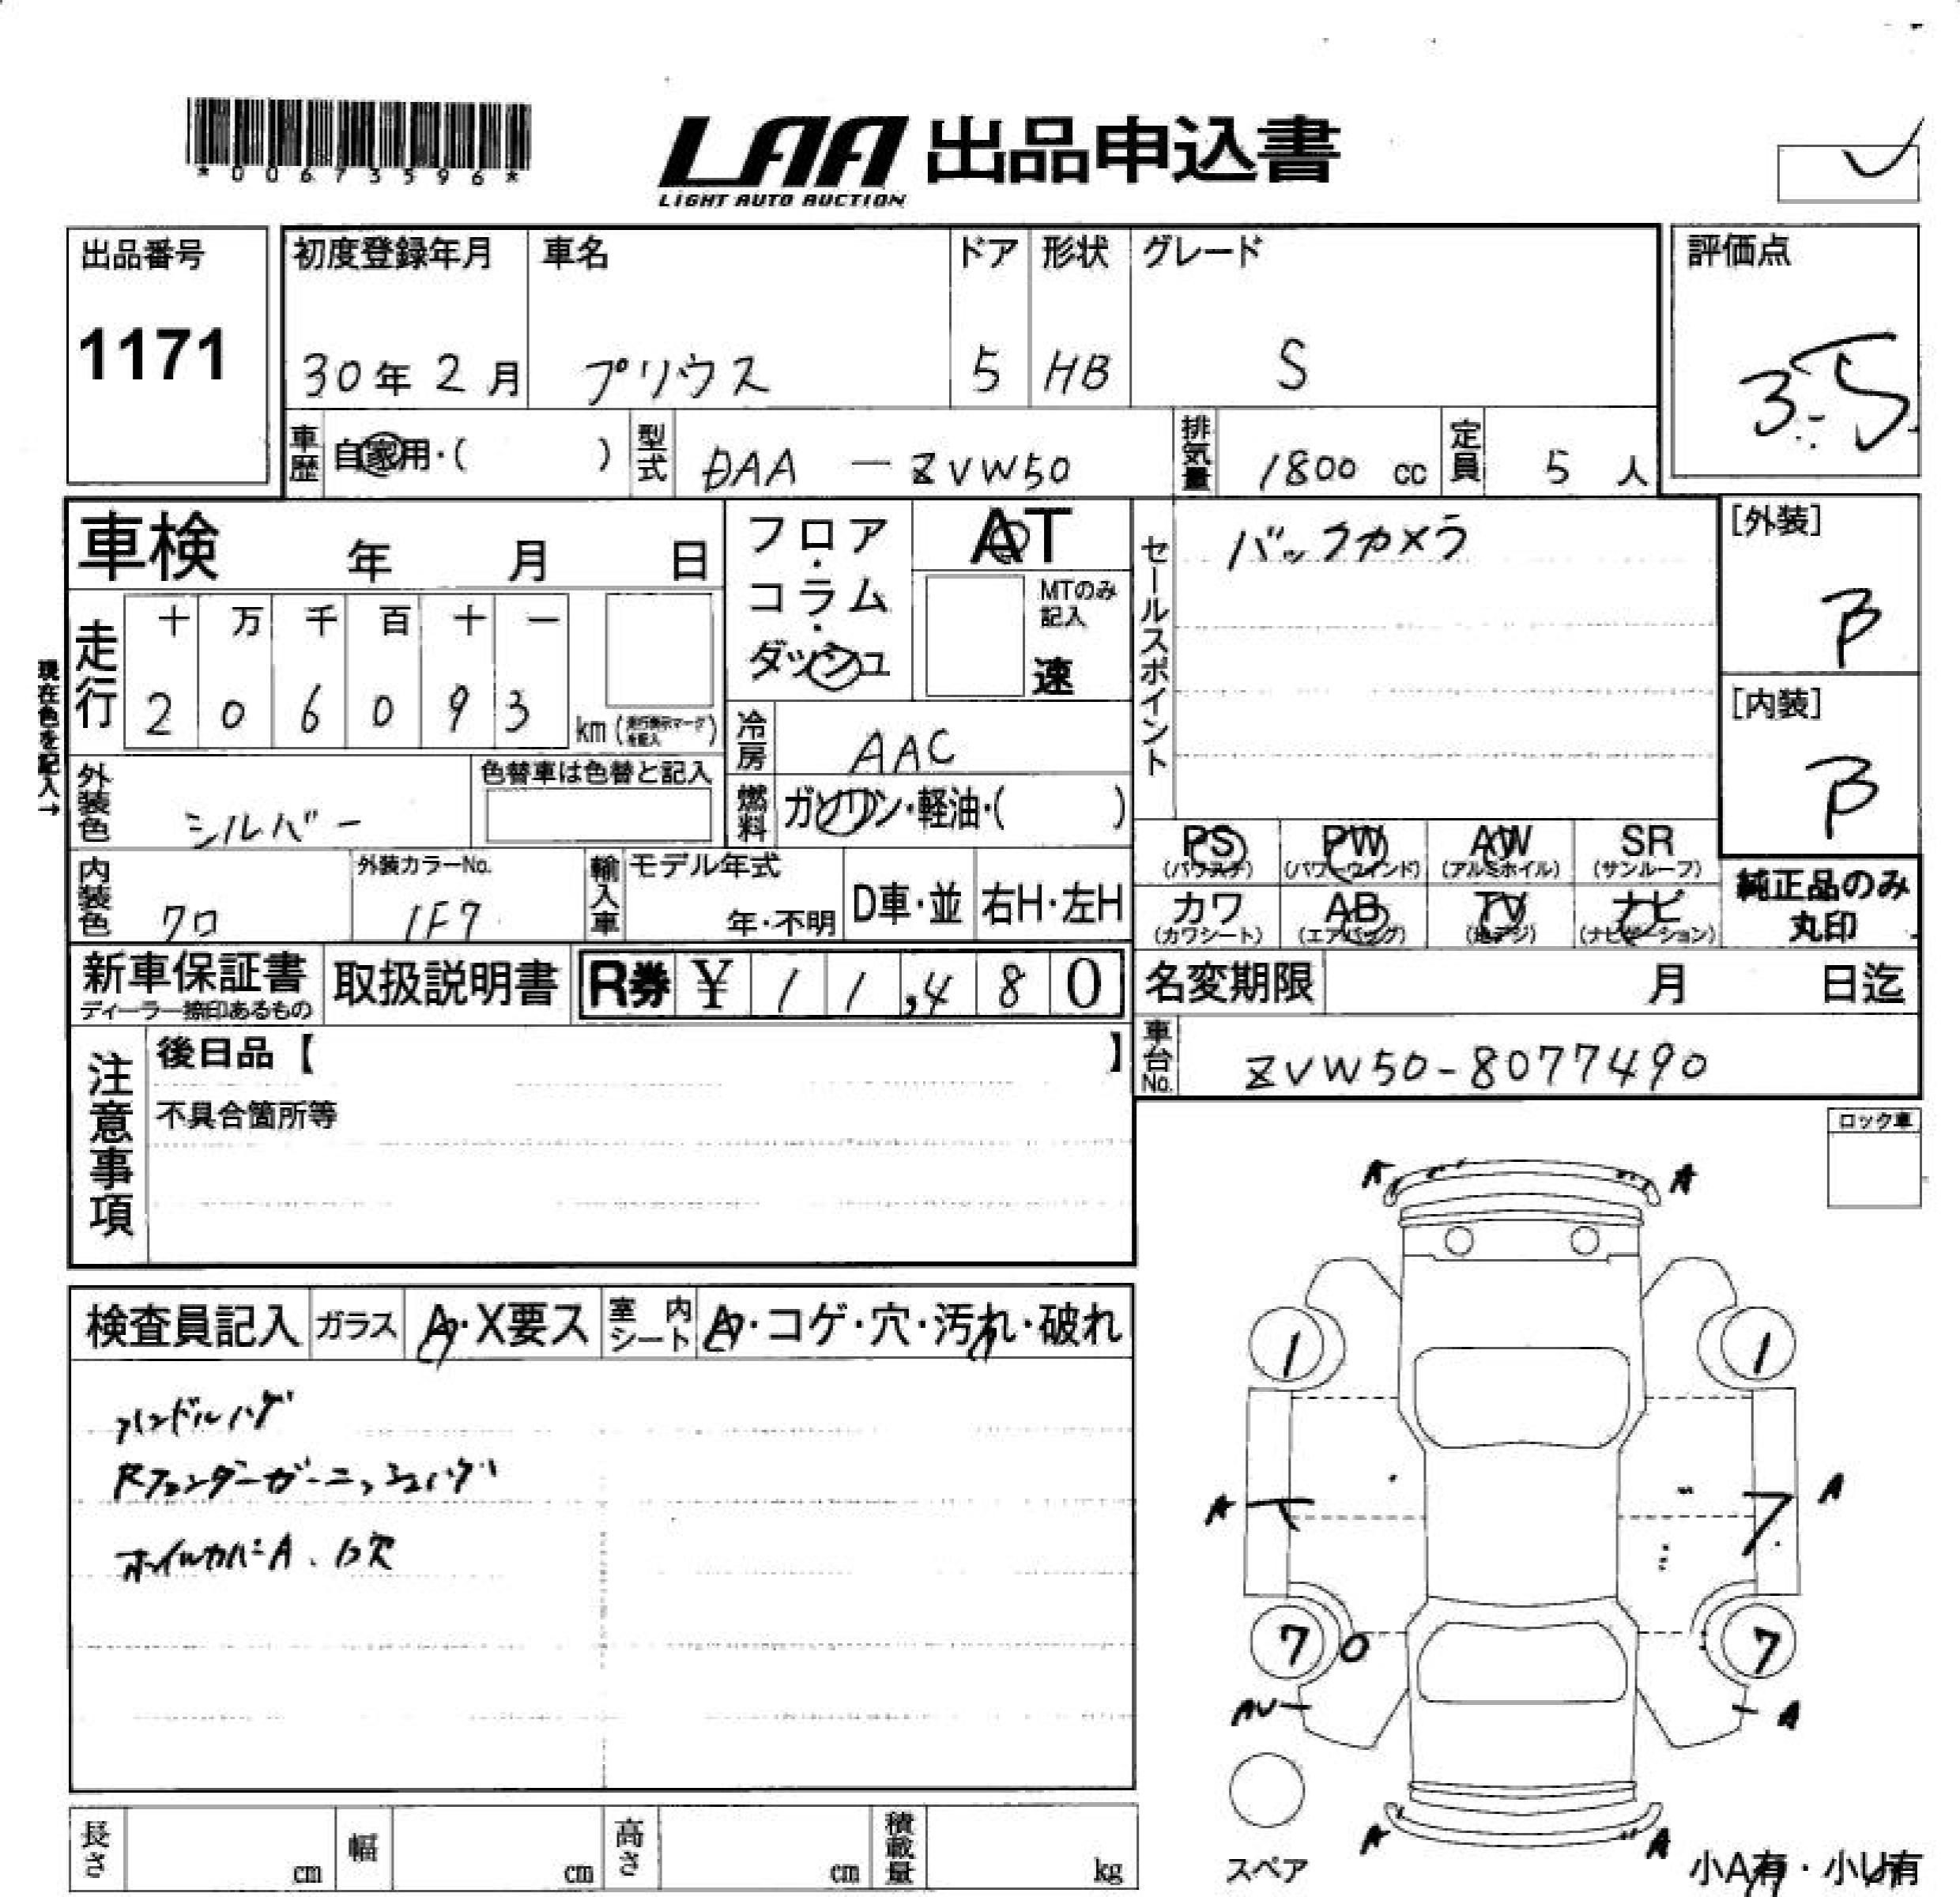 *00673596*
LAA 出品申込書
LIGHT AUTO AUCTION
出品番号
1171
初度登録年月 車名 ドア 形状 グレード
30年 2月 プリウス 5 HB S
評価点
3.5
車歴 自家用・( ) 型式 DAA - ZVW50 排気量 1800 cc 定員 5 人
車検 年 月 日
フロア・コラム・ダッシュ
AT
MTのみ記入
速
セールスポイント
バックカメラ
[外装]
B
[内装]
B
現在色を記入→
走行
十 万 千 百 十 一
2 0 6 0 9 3
km (走行表示マークを記入)
冷房 AAC
外装色 シルバー
色替車は色替と記入
燃料 ガソリン・軽油・( )
PS (パワステ) PW (パワーウインド) AW (アルミホイル) SR (サンルーフ)
カワ (カワシート) AB (エアバッグ) TV (地デジ) ナビ (ナビゲーション)
純正品のみ丸印
内装色 クロ
外装カラーNo.
1F7
輸入車 モデル年式
年・不明
D車・並 右H・左H
新車保証書
ディーラー捺印あるもの
取扱説明書
R券 ¥ 11,480
名変期限 月 日迄
車台No. ZVW50-8077490
注意事項
後日品【 】
不具合箇所等
ロック車
検査員記入 ガラス A・X要ス 室内シート A・コゲ・穴・汚れ・破れ
ハンドルハゲ
Rフェンダーガーニッシュハゲ
ホイルカバーA、1コ欠
A A
1 1
A A
7 7
AU A
A A
スペア
小A有・小U有
長さ cm 幅 cm 高さ cm 積載量 kg